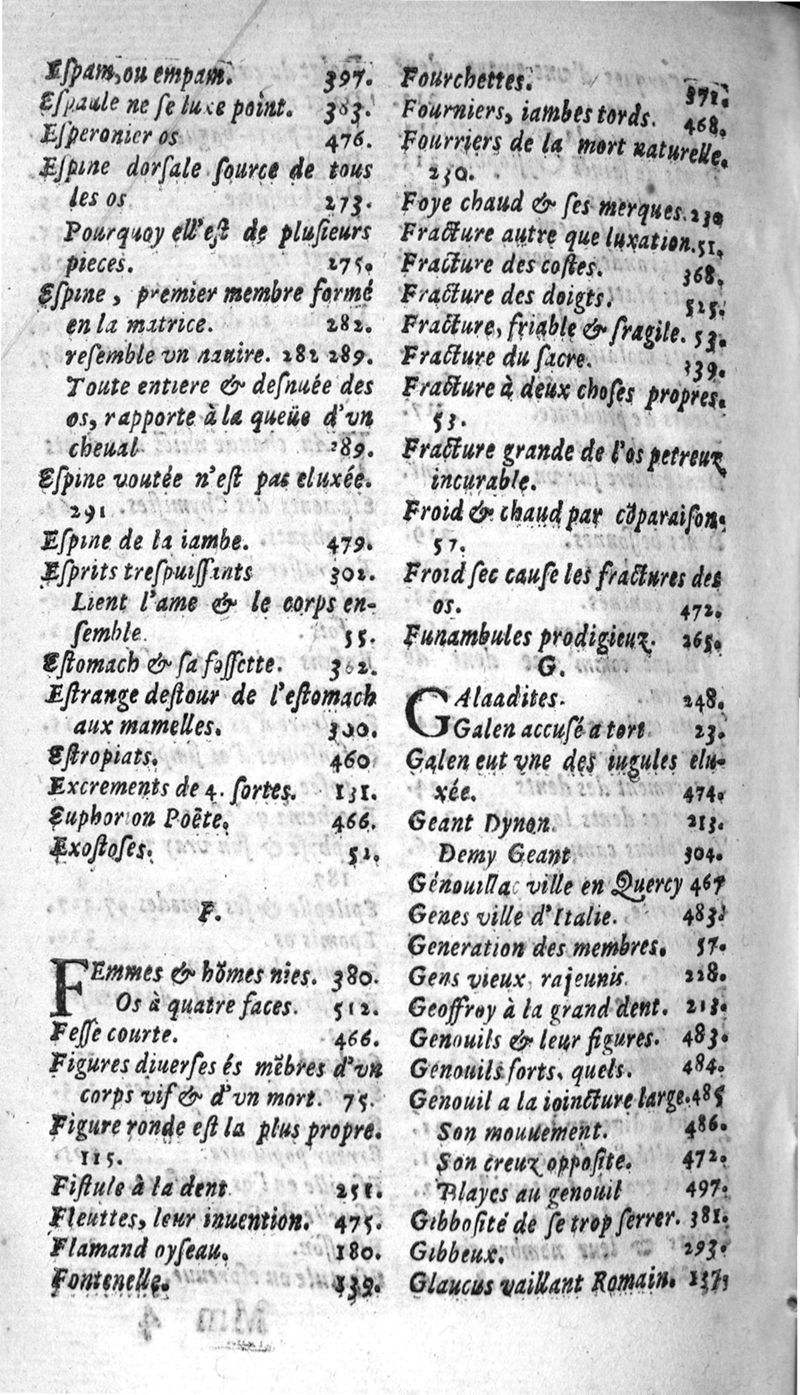 Eſpam, ou empam. 397.
Eſpaule ne ſe luxe point. 383.
Eſperonier os 476.
Eſpine dorſale ſource de tous
les os 273.
Pourquoy ell'eſt de pluſieurs
pieces. 275.
Eſpine, premier membre formé
en la matrice. 282.
reſemble vn nauire. 282 289.
Toute entiere & deſnuée des
os, rapporte à la queüe d'vn
cheual 289.
Eſpine voutée n'eſt pas eluxée.
291
Eſpine de la iambe. 479.
Eſprits treſpuiſſants 302.
Lient l'ame & le corps en-
ſemble. 55.
Eſtomach & ſa foſſette. 362.
Eſtrange deſtour de l'eſtomach
aux mamelles. 300.
Eſtropiats. 460
Excrements de 4. ſortes. 131.
Euphorion Poëte. 466.
Exoſtoſes. 52.
F.
FEmmes & hõmes nies. 380.
Os à quatre faces. 512.
Feſſe courte. 466.
Figures diuerſes és mẽbres d'vn
corps vif & d'vn mort. 75.
Figure ronde eſt la plus propre.
115.
Fiſtule à la dent 251.
Fleuttes, leur inuention. 475.
Flamand oyſeau. 180.
Fontenelle. 139.
Fourchettes. 371.
Fourniers, iambes tords. 468.
Fourriers de la mort naturelle.
230.
Foye chaud & ſes merques. 230
Fracture autre que luxation. 51.
Fracture des coſtes. 368.
Fracture des doigts. 525.
Fracture, friable & fragile. 53.
Fracture du ſacre. 339.
Fracture à deux choſes propres.
53.
Fracture grande de l'os petreux
incurable.
Froid & chaud par cõparaiſon.
57.
Froid ſec cauſe les fractures des
os. 472.
Funambules prodigieux. 265.
G.
GAlaadites. 248.
Galen accuſé a tort 23.
Galen eut vne des iugules elu-
xée. 474.
Geant Dynon. 213.
Demy Geant 304.
Génouillac ville en Quercy 467
Genes ville d'Italie. 483.
Generation des membres. 57.
Gens vieux rajeunis. 228.
Geoffroy à la grand dent. 213.
Genouils & leur figures. 483.
Genouils forts, quels. 484.
Genouil a la ioincture large. 485
Son mouuement. 486.
Son creux oppoſite. 472.
Playes au genouil 497.
Gibboſité de ſe trop ſerrer. 381.
Gibbeux. 293.
Glaucus vaillant Romain. 137.